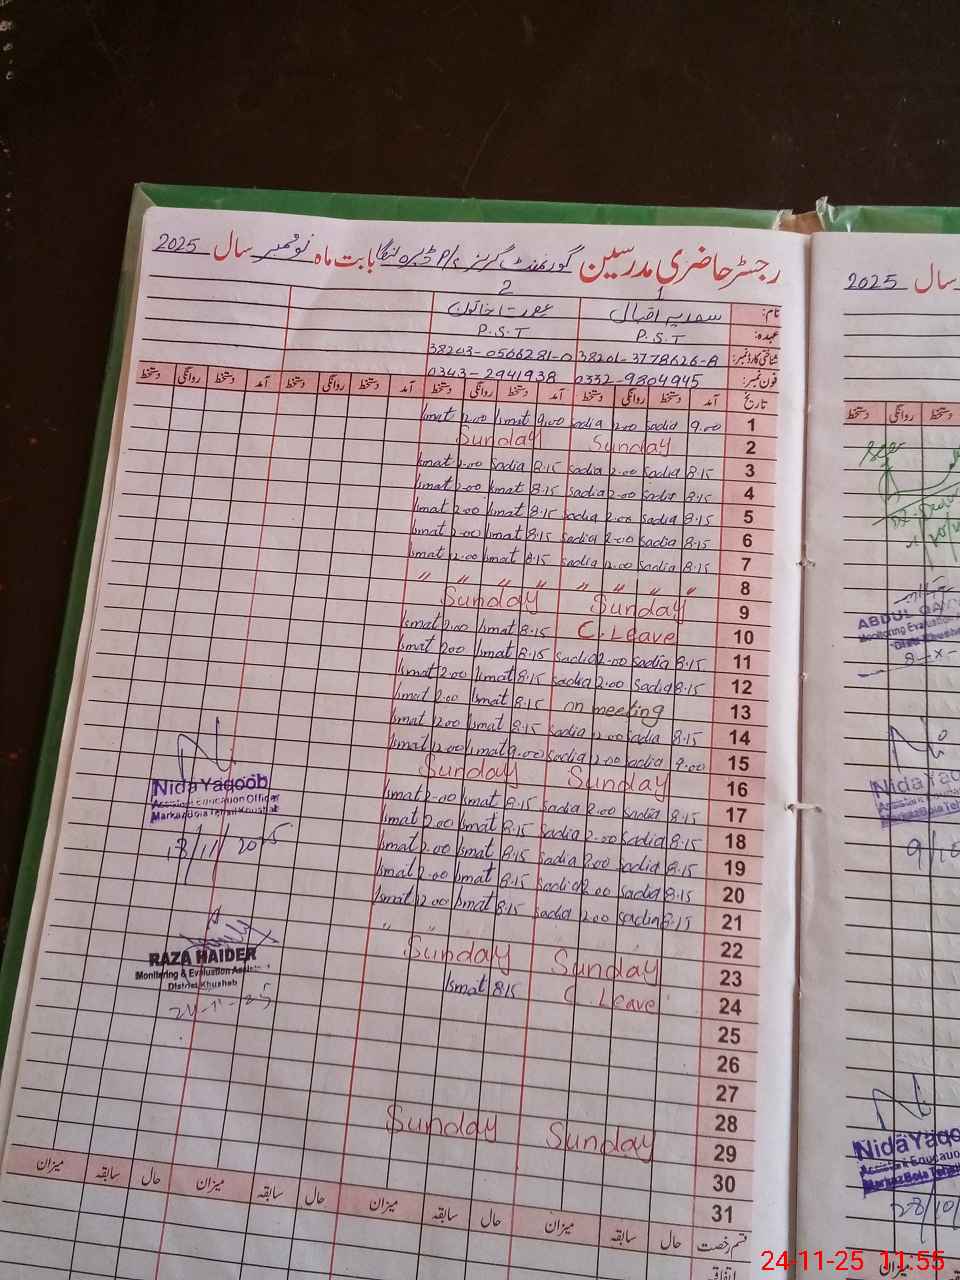 رجسٹر حاضری مدرسین گورنمنٹ گرلز P/S ڈیرہ لنگا بابت ماہ نومبر سال 2025
1 2
نام: سعدیہ اقبال
عہدہ: P.S.T P.S.T
شناختی کارڈ نمبر: 38201-3778626-8 38203-0566281-0
فون نمبر: 0332-9804945 0343-2941938
تاریخ آمد دستخط روانگی دستخط آمد دستخط روانگی دستخط آمد دستخط روانگی دستخط آمد دستخط روانگی دستخط
Ismat 2.00 Ismat 9.00 Sadia 2.00 Sadia 9.00 1
Sunday Sunday 2
Ismat 2.00 Sadia 8.15 Sadia 2.00 Sadia 8.15 3
Ismat 2.00 Ismat 8.15 Sadia 2.00 Sadia 8.15 4
Ismat 2.00 Ismat 8.15 Sadia 2.00 Sadia 8.15 5
Ismat 2.00 Ismat 8.15 Sadia 2.00 Sadia 8.15 6
Ismat 2.00 Ismat 8.15 Sadia 2.00 Sadia 8.15 7
" " " " " " " " 8
Sunday Sunday 9
Ismat 2.00 Ismat 8.15 C. Leave 10
Ismat 2.00 Ismat 8.15 Sadia 2.00 Sadia 8.15 11
Ismat 2.00 Ismat 8.15 Sadia 2.00 Sadia 8.15 12
Ismat 2.00 Ismat 8.15 on meeting 13
Ismat 2.00 Ismat 8.15 Sadia 2.00 Sadia 8.15 14
Ismat 2.00 Ismat 9.00 Sadia 2.00 Sadia 9.00 15
Sunday Sunday 16
Ismat 2.00 Ismat 8.15 Sadia 2.00 Sadia 8.15 17
Ismat 2.00 Ismat 8.15 Sadia 2.00 Sadia 8.15 18
Ismat 2.00 Ismat 8.15 Sadia 2.00 Sadia 8.15 19
Ismat 2.00 Ismat 8.15 Sadia 2.00 Sadia 8.15 20
Ismat 2.00 Ismat 8.15 Sadia 2.00 Sadia 8.15 21
22
Sunday Sunday 23
Ismat 8.15 C. Leave 24
25
26
27
28
Sunday Sunday 29
30
31
قسم رخصت حال سابقہ میزان حال سابقہ میزان حال سابقہ میزان حال سابقہ میزان
اتفاقی
Nida Yaqoob
Assistant Education Officer
Markaz Bola Tehsil Khushab
18/11/2025
RAZA HAIDER
Monitoring & Evaluation Assis
District Khushab
24-11-25
سال 2025
دستخط روانگی دستخط
ABDUL QA
Monitoring Evaluation
Nida Yaqoob
Markaz Bola Te
9/10
Nida Yaqoo
Assistant Educatio
Markaz Bola Teh
28/10/
میزان
24-11-25 11:55